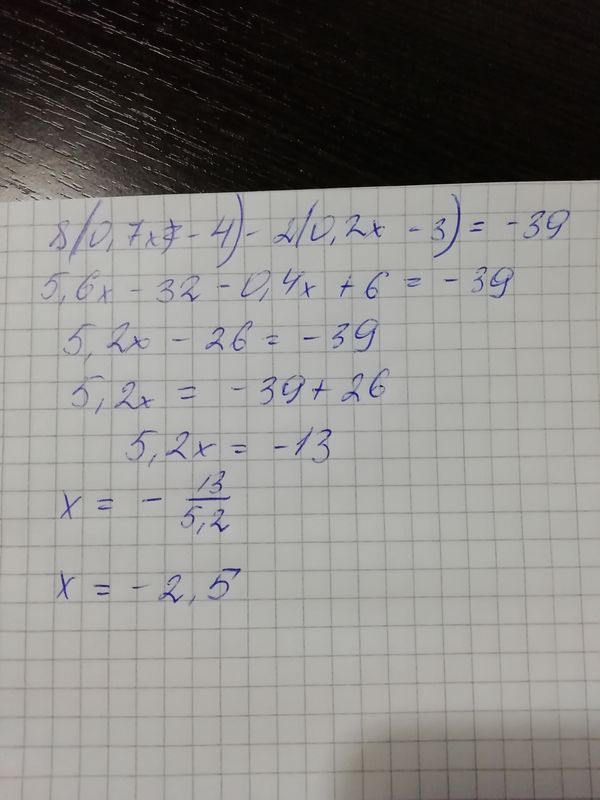 8(0,7x - 4) - 2(0,2x - 3) = -39
5,6x - 32 - 0,4x + 6 = -39
5,2x - 26 = -39
5,2x = -39 + 26
5,2x = -13
x = - 13/5,2
x = -2,5